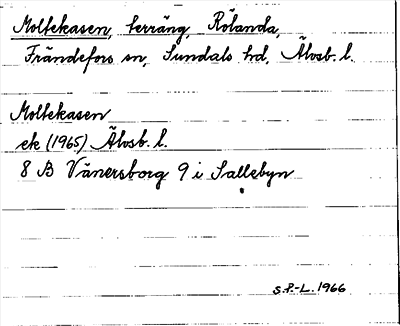 Moltekasen, terräng, Rölanda,
Frändefors sn, Sundals hd, Älvsb. l.
Moltekasen
ek (1965) Älvsb. l.
8 B Vänersborg 9 i Sallebyn
S.P.-L. 1966